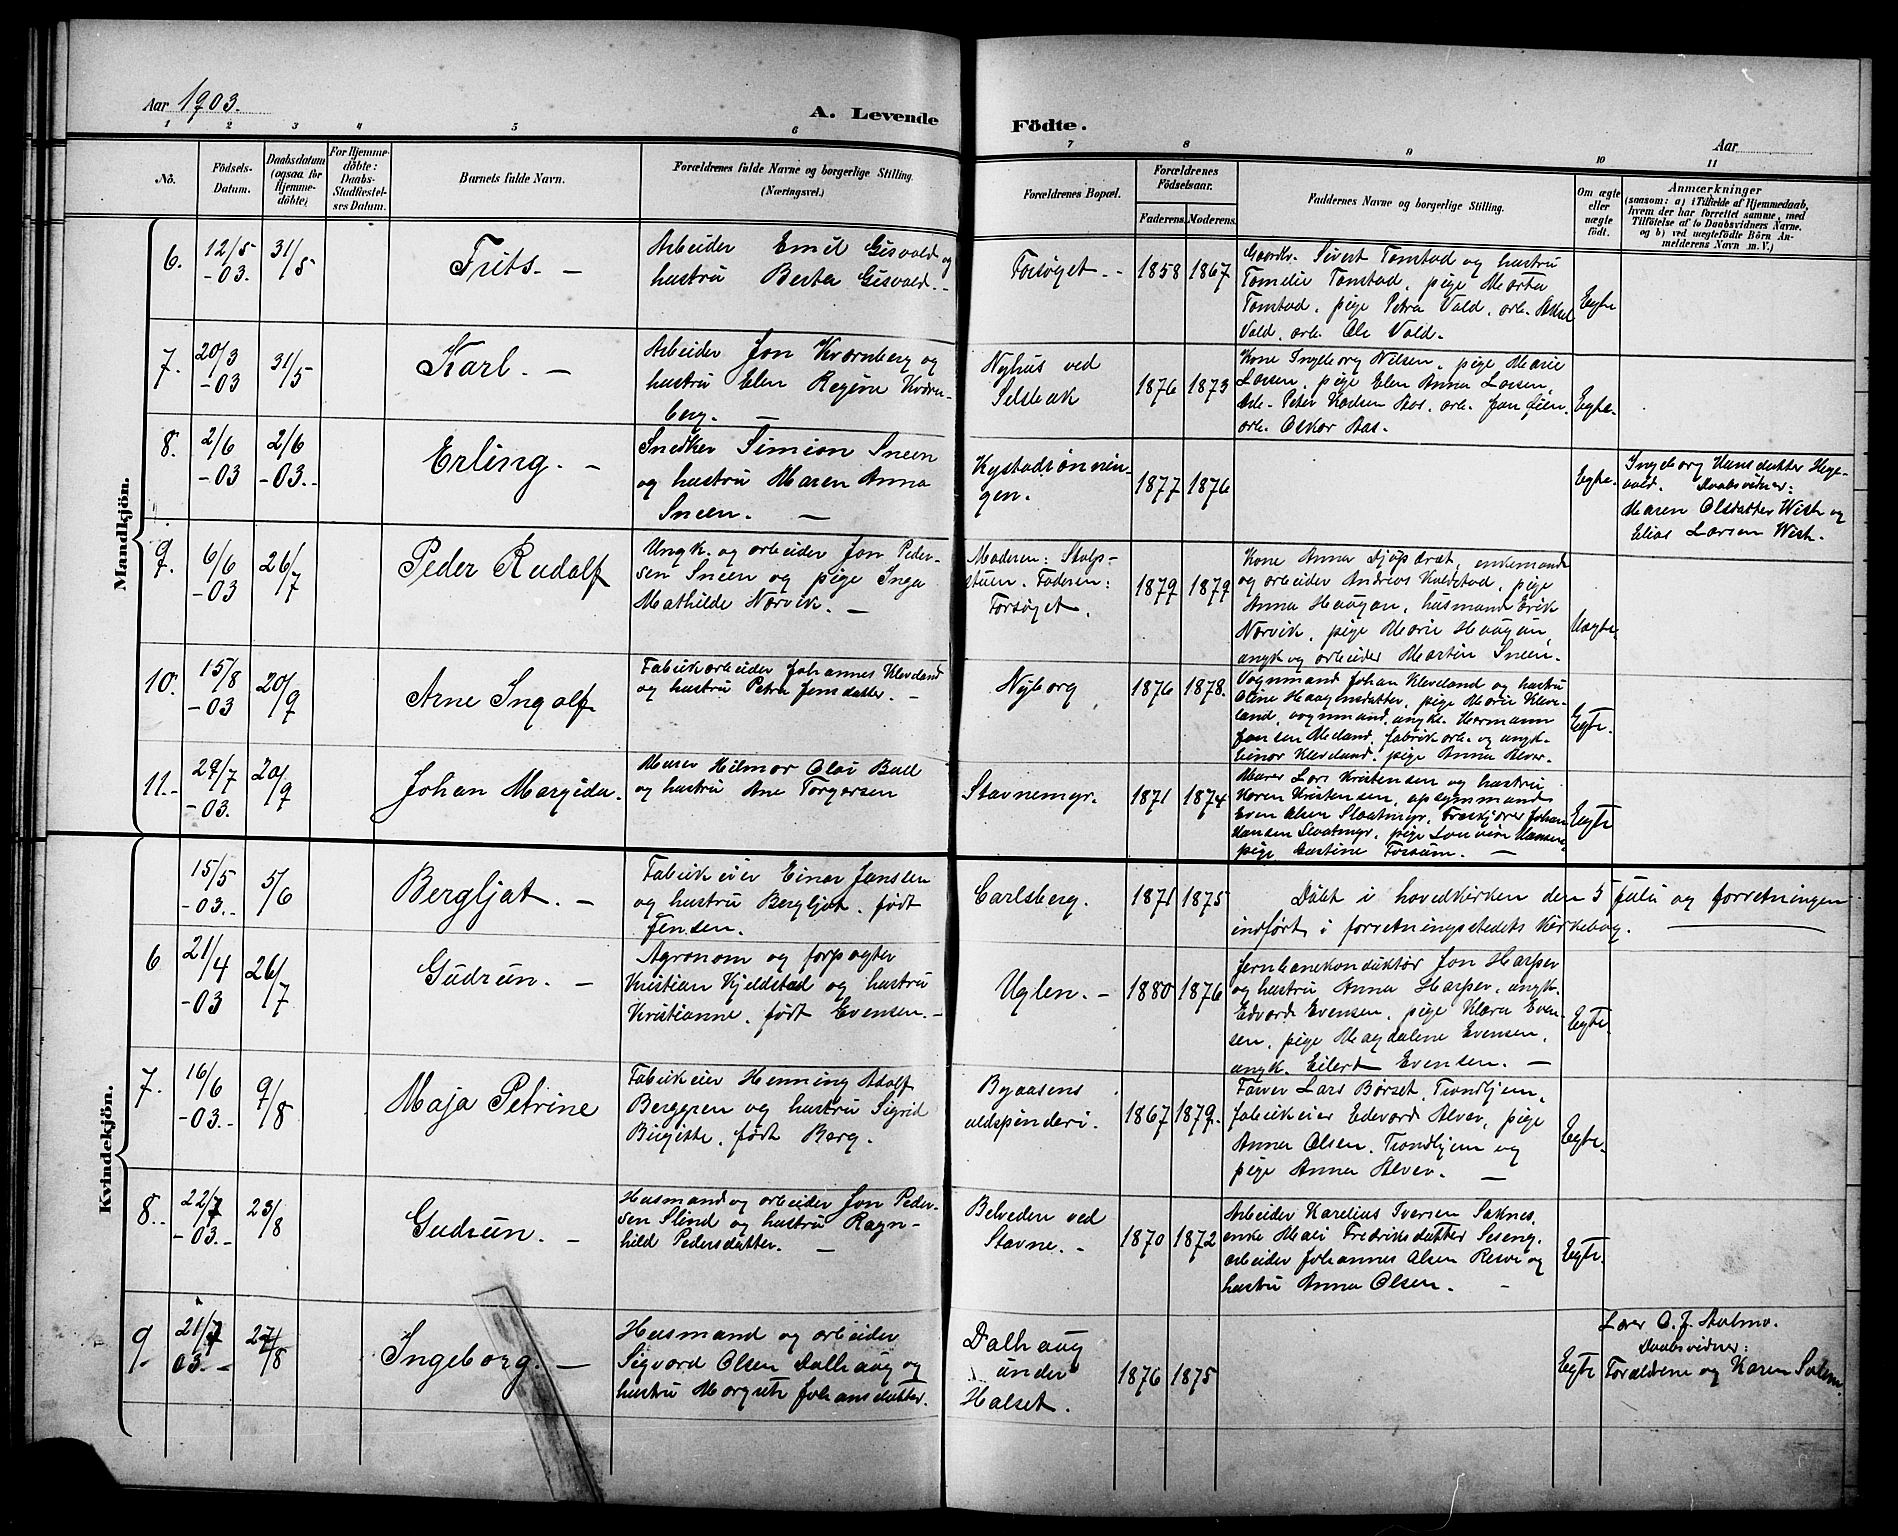 Aar 1903.
A. Levende
Födte.
Aar
1 2 3 4 5 6 7 8 9 10 11
No.
Födsels-
Datum.
Daabsdatum
(ogsaa for
Hjemme-
döbte)
For Hjemme-
döbte:
Daabs-
Stadfæstel-
ses Datum.
Barnets fulde Navn.
Forældrenes fulde Navne og borgerlige Stilling.
(Næringsvei.)
Forældrenes Bopæl.
Forældrenes
Födselsaar.
Faderens. Moderens.
Faddernes Navne og borgerlige Stilling.
Om ægte
eller
uægte
født.
Anmærkninger
(saasom: a) i Tilfælde af Hjemmedaab,
hvem der har forrettet samme, med
Tilföielse af to Daabsvidners Navne.
og b) ved uægtefödte Börn An-
melderens Navn m. V.)
Mandkjön.
6.
12/5
-03.
31/5
Frits. -
Arbeider Emil Gisvold og
hustru Berta Gisvold. -
Forsøget. -
1858 1867
Gaardbr. Sivert Tomstad og hustru
Tomstad, pige Marta
Tomstad, pige Petra Vold, arb.
Vold, arb. Ole Vold.
Egte
7.
20/3
-03
31/5
Karl. -
Arbeider Jon Kvernberg og
hustru Elen Regine Kvern-
berg.
Nyhus ved
Selsbak
1876 1873
Kone Ingeborg Nilsen, pige Marie
Larsen, pige Elen Anna Larsen,
Arb. Peter Karlsen Aas, arb. Jon
arb. Oskar Aas.
Egte.
8.
2/6
-03
2/6
-03.
Erling. -
Snedker Simion Sneen
og hustru Maren Anna
Sneen. -
Kystadrønnin-
gen.
1877 1876
Egte.
Ingeborg Hansdatter
Daabsvidner:
Maren Olsdatter Wist og
Elias Larsen Wist.
9.
6/6
-03
26/7
Peder Rudolf
Ungk. og arbeider Jon Peder-
sen Sneen og pige Inga
Mathilde Nervik. -
Moderen: Stolp-
stuen. Faderen:
Forsøget.
1879 1879
Kone Anna
og arbeider Andreas Kvldstad, pige
Anna Haagan, husmand Erik
Nervik, pige Marie Haagan,
ungk og arbeider Martin Sneen.
Uægte.
10.
15/8
-03
20/9
Arne Ingolf
Fabrikarbeider Johannes Kleveland
og hustru Petra Jensdatter. -
Nyborg
1876 1878.
Vognmand Johan Kleveland og hustru
Oline Haagensdatter, pige Marie Kleve-
land, vognmand, ungk. Hermann
Jonsen Meland, fabrikarb. og ungk.
Einar Kleveland. pige Anna Alver.
Egte.
11.-
29/7
-03.
20/9
Johan Margido.
Murer Hilmar Olai Bull
og hustru Ane Torgersen
Stavnemyr.
1871 1874
Murer Lars Kristensen og hustru
Karen Kristensen, opsynsmand
Even Olsen Slaatmyr, Johan
Hansen Slaatmyr, pige Hansen,
pige
Egte
Kvindekjön.
15/5
-03.-
5/6
Bergljot. -
Fabrikeier Einar Jansen
og hustru Bergljot, født
Jensen.
Carlsberg.
1871 1875
Døbt i hovedkirken den 5 juli og forretningen
indført i forretningsstedets Kirkebog.
6
21/4
-03
26/7
Gudrun. -
Agronom og forpagter
Kristian Kjeldstad og hustru
Kristianne, født Evensen. -
Uglen. -
1880 1876
Jernbanekonduktør Jon Harper
og hustru Anna Harper, ungk.
Edvard Evensen, pige Klara Even-
sen, pige Magdalene Evensen,
ungk. Eilert Evensen. -
Egte.
7.
16/6
-03.-
9/8
Maja Petrine
Fabrikeier Henning Adolf
Berggren og hustru Sigrid
Birgitte, født Berg.
Byaasens
uldspinderi.
1867 1879.
Farver Lars Børset, Trondhjem,
fabrikeier Edevard Alver, pige
Anna Olsen, Trondhjem og
pige Anna Alver. -
Egte.
8.
22/7
-03.-
23/8
Gudrun. -
Husmand og arbeider Jon Peder-
sen Slind og hustru Ragn-
hild Pedersdatter. -
Belvedere ved
Stavne. -
1870 1872
Arbeider Karelius Iversen Saknes,
enke Mari Fredriksdatter Seseng,
arbeider Johannes Olsen Resve og
hustru Anna Olsen. -
Egte.
9.
21/7
03.-
27/8
Ingeborg. -
Husmand og arbeider
Sigvard Olsen Dalhaug og
hustru Margrete Johansdatter.
Dalhaug
under
Halset.
1876 1875
Egte
Lærer O. J. Aalmo.
Daabsvidner:
Forældrene og Karen